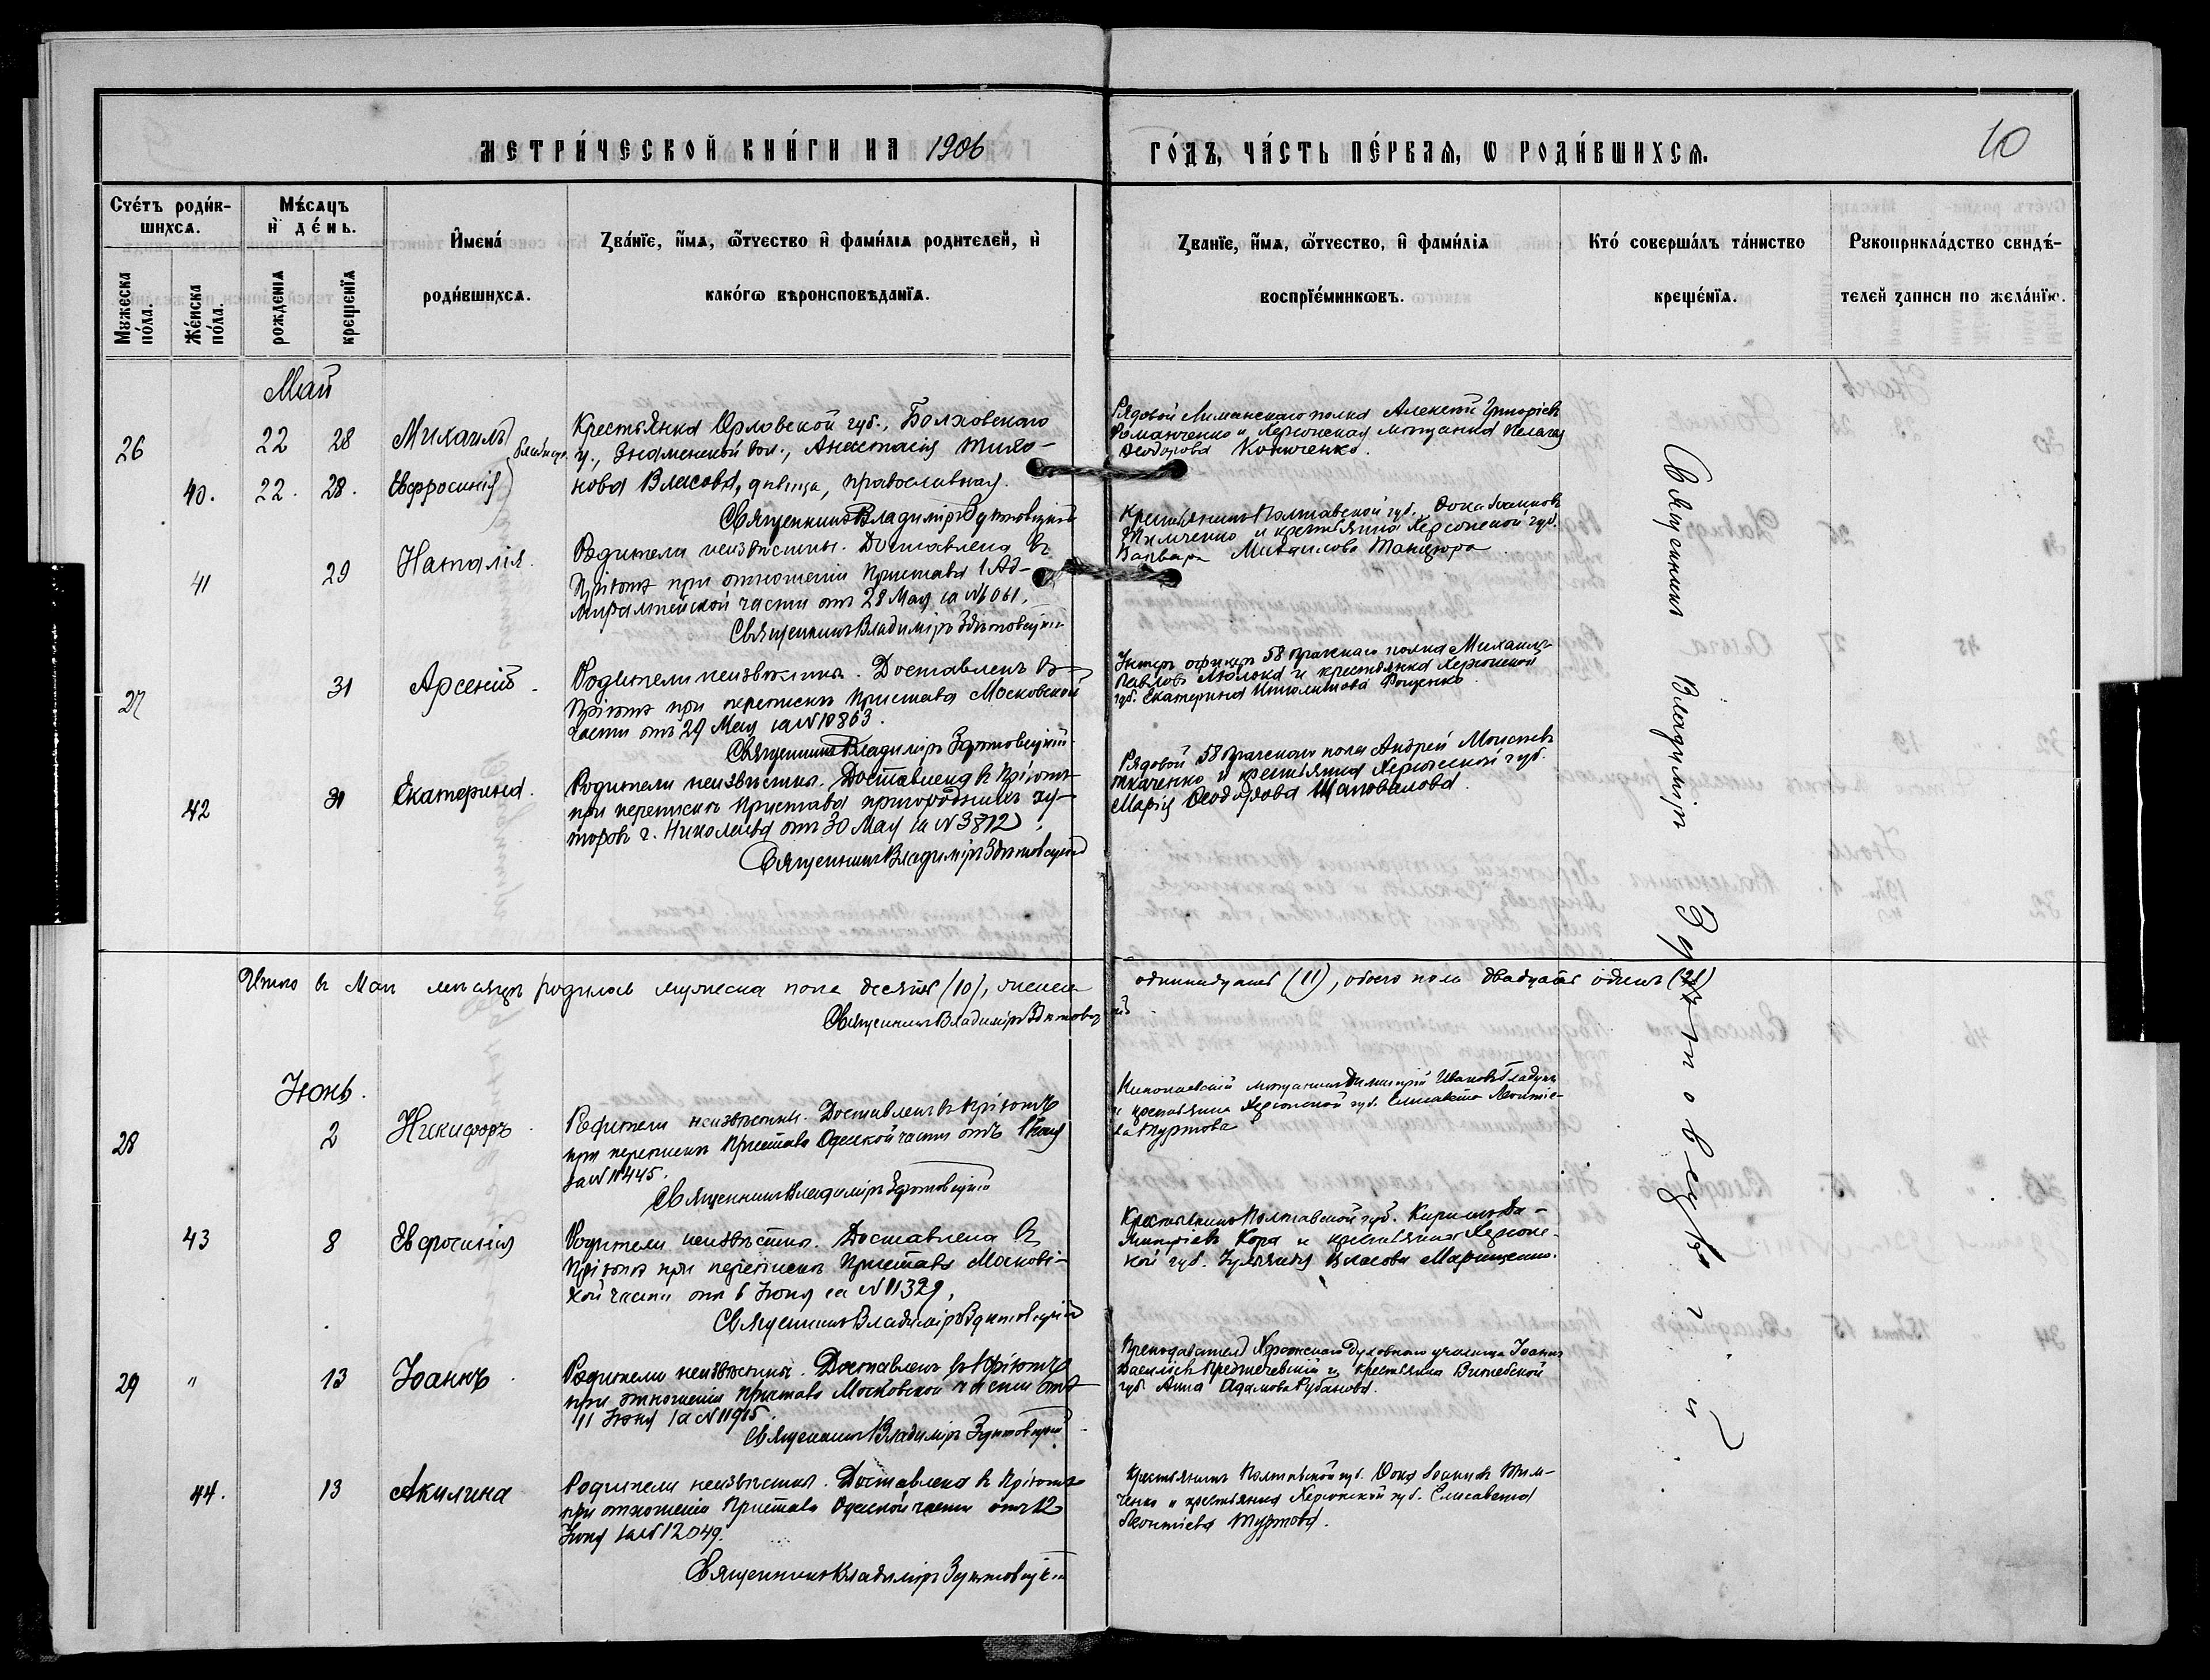 МЕТРИ́ЧЕСКОЙ КНИ́ГИ НА 1906
ГО́ДЪ, ЧА́СТЬ ПЕ́РВАѦ, Ѡ РОДИ́ВШИХСѦ.
10
Счéтъ роди́в-
шихсѧ.
Мѣ́сѧцъ
и҆ де́нь.
И҆мена́
роди́вшихсѧ.
Зва́нїе, и҆́мѧ, ѻ҆́тчество и҆ фами́лїѧ родителей, и҆
како́гѡ вѣроисповѣданїѧ.
Званїе, и҆́мѧ, ѻ҆́тчество, и҆ фами́лїѧ
воспрїе́мникѡвъ.
Кто́ соверша́лъ та́инство
креще́нїѧ.
Рꙋкоприкла́дство свидѣ́-
телей записи по жела́нїю.
Мꙋжеска
по́ла.
Же́нска
по́ла.
рожденїѧ
крещенїѧ
Май
26
22
28
Михаилъ
40.
22.
28.
Евфросинія
близнец.
Крестьянка Орловской губ., Болховскаго
у., Знаменской вол., Анастасія Тихо-
нова Власова, дѣвица, православная.
Священникъ Владиміръ Здетовецкій
Рядовой Лиманскаго полка Алексѣй Григоріевъ
Романченко и Херсонская мѣщанка Пелагея
Ѳеодорова Конюченко.
41
29
Наталія.
Родители неизвѣстны. Доставлена въ
Пріютъ при отношеніи Пристава 1 Ад-
миралтейской части отъ 28 Мая за №6061.
Священникъ Владиміръ Здетовецкій
Крестьянинъ Полтавской губ., Ѳока Іоанновъ
Тимченко и крестьянка Херсонской губ.
Варвара Михайлова Танцюра
27
31
Арсеній.
Родители неизвѣстны. Доставленъ въ
Пріютъ при перепискѣ Пристава Московской
части отъ 29 Мая за №10863.
Священникъ Владиміръ Здетовецкій
Унтеръ офицеръ 58 Пражскаго полка Михаилъ
Павловъ Люлька и крестьянка Херсонской
губ. Екатерина Ипполитова Рощенко
42
31
Екатерина.
Родители неизвѣстны. Доставлена въ Пріютъ
при перепискѣ Пристава пригородныхъ ху-
торовъ г. Николаева отъ 30 Мая за №3812.
Священникъ Владиміръ Здетовецкій
Рядовой 58 Пражскаго полка Андрей Моисеевъ
Ткаченко и крестьянка Херсонской губ.
Марія Ѳеодорова Шаповалова.
Итого въ Маѣ мѣсяцѣ родилось мужеска пола десять (10), женска
одиннадцать (11), обоего пола двадцать одинъ (21)
Священникъ Владиміръ Здетовецкій
Іюнь.
28
2
Никифоръ
Родители неизвѣстны. Доставленъ въ Пріютъ
при перепискѣ Пристава Одесской части отъ 1 Іюня
за №11445.
Священникъ Владиміръ Здетовецкій
Николаевскій мѣщанинъ Димитрій Ивановъ Гладунъ
и крестьянка Херсонской губ. Елисавета Леонтіе-
ва Туртова
43
8
Евфросинія
Родители неизвѣстны. Доставлена въ
Пріютъ при перепискѣ Пристава Московс-
кой части отъ 6 Іюня за №11329.
Священникъ Владиміръ Здетовецкій
Крестьянинъ Полтавской губ. Кириллъ Ди-
митріевъ Кора и крестьянка Херсонс-
кой губ. Іуліанія Власова Марищенко.
29
"
13
Іоаннъ
Родители неизвѣстны. Доставленъ въ Пріютъ
при отношеніи Пристава Московской части отъ
11 Іюня за №11915.
Священникъ Владиміръ Здетовецкій
Преподаватель Херсонскаго Духовнаго училища Іоаннъ
Васильевъ Предтечевскій и крестьянка Витебской
губ. Анна Адамова Рубанова.
44.
13
Акилина
Родители неизвѣстны. Доставлена въ Пріютъ
при отношеніи Пристава Одесской части отъ 12
Іюня за №12049.
Священникъ Владиміръ Здетовецкій
Крестьянинъ Полтавской губ. Ѳока Іоанновъ Тим-
ченко и крестьянка Херсонской губ. Елисавета
Леонтіева Туртова.
Священникъ Владиміръ Здетовецкій.